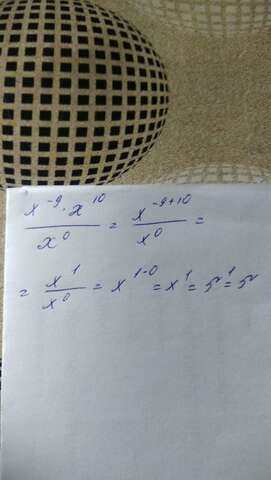 x^-9 · x^10 / x^0 = x^-9+10 / x^0 =
= x^1 / x^0 = x^1-0 = x^1 = 5^1 = 5